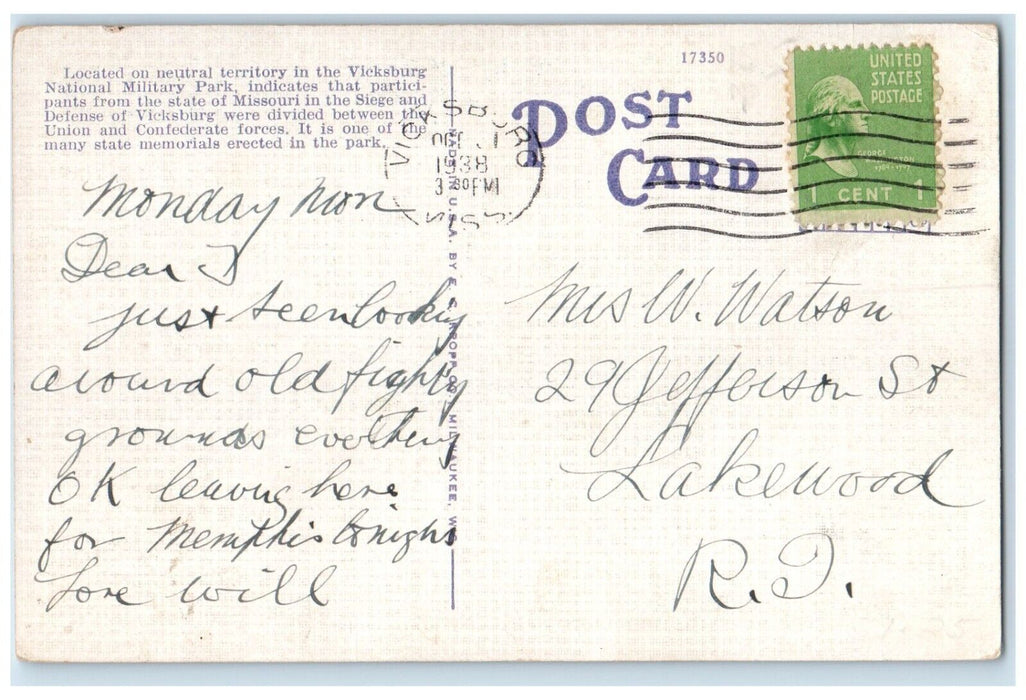 Located on neutral territory in the Vicksburg
National Military Park, indicates that partici-
pants from the state of Missouri in the Siege and
Defense of Vicksburg were divided between the
Union and Confederate forces. It is one of the
many state memorials erected in the park.
17350
POST
CARD
VICKSBURG
1938
3 30 PM
MISS
UNITED
STATES
POSTAGE
GEORGE
WASHINGTON
1 CENT 1
MADE IN U.S.A. BY E. C. KROPP CO., MILWAUKEE, WIS.
Monday
Dear
just been looking
around old fighting
grounds everthing
OK leaving here
for Memphis tonight
Love Will
Mrs W. Watson
29 Jefferson St
Lakewood
R.I.